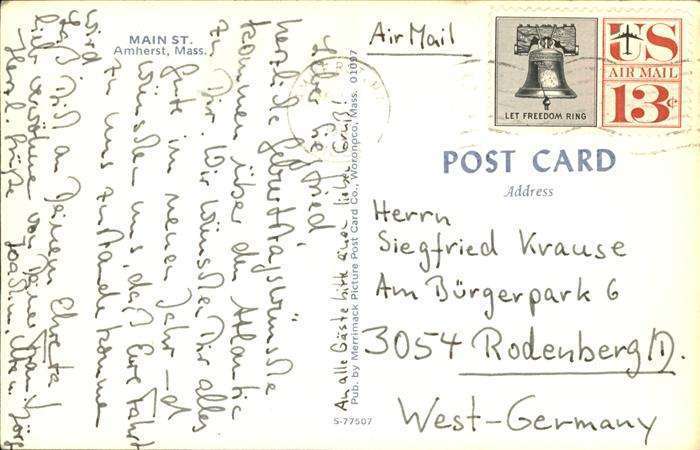 MAIN ST.
Amherst, Mass.
Lieber Siegfried!
herzliche Geburtstagswünsche
kommen über den Atlantic
zu Dir. Wir wünschen Dir alles
Gute im neuen Jahr – und
wünschen uns, daß Eure Fahrt
zu uns zustande kommen
wird.
Laß Dich an Deinem Ehrentag
lieb verwöhnen von Deiner
Herzl. Grüße Joachim,
An alle Gäste bitte einen lieben Gruß!
Pub. by Merrimack Picture Post Card Co., Woronoco, Mass. 01097
S-77507
Air Mail
LET FREEDOM RING
US
AIR MAIL
13¢
POST CARD
Address
Herrn
Siegfried Krause
Am Bürgerpark 6
3054 Rodenberg
West-Germany